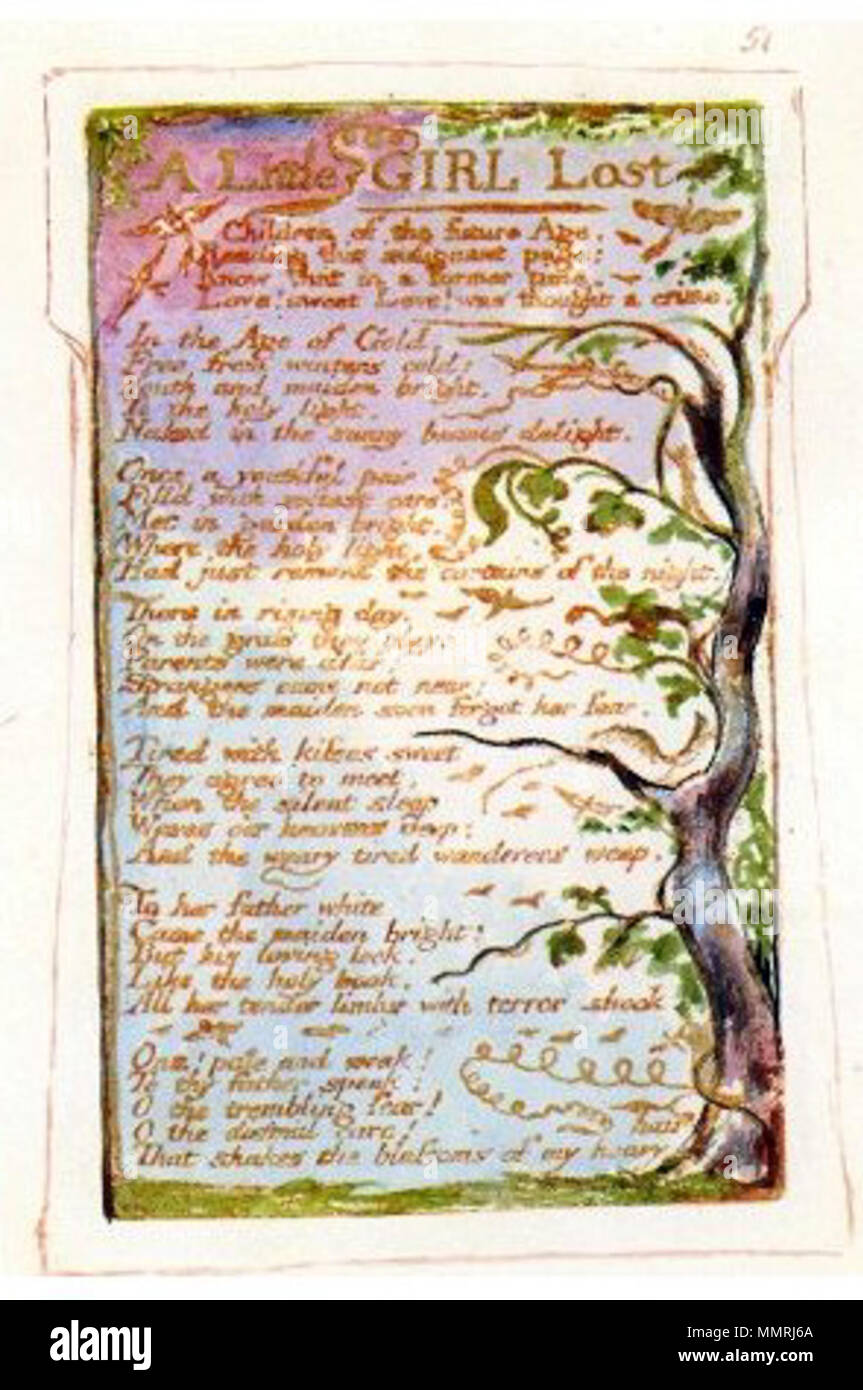 51
A Little GIRL Lost
Children of the future Age,
Reading this indignant page;
Know that in a former time,
Love! sweet Love! was thought a crime.
In the Age of Gold,
Free from winters cold:
Youth and maiden bright,
To the holy light,
Naked in the sunny beams delight.
Once a youthful pair
Fill'd with softest care:
Met in garden bright,
Where the holy light,
Had just remov'd the curtains of the night.
There in rising day,
On the grass they play:
Parents were afar,
Strangers came not near:
And the maiden soon forgot her fear.
Tired with kisses sweet
They agree to meet,
When the silent sleep
Waves o'er heavens deep:
And the weary tired wanderers weep.
To her father white
Came the maiden bright:
But his loving look,
Like the holy book,
All her tender limbs with terror shook
Ona! pale and weak!
To thy father speak:
O the trembling fear!
O the dismal care!
That shakes the blossoms of my hoary hair
alamy
Image ID: MMRJ6A
www.alamy.com